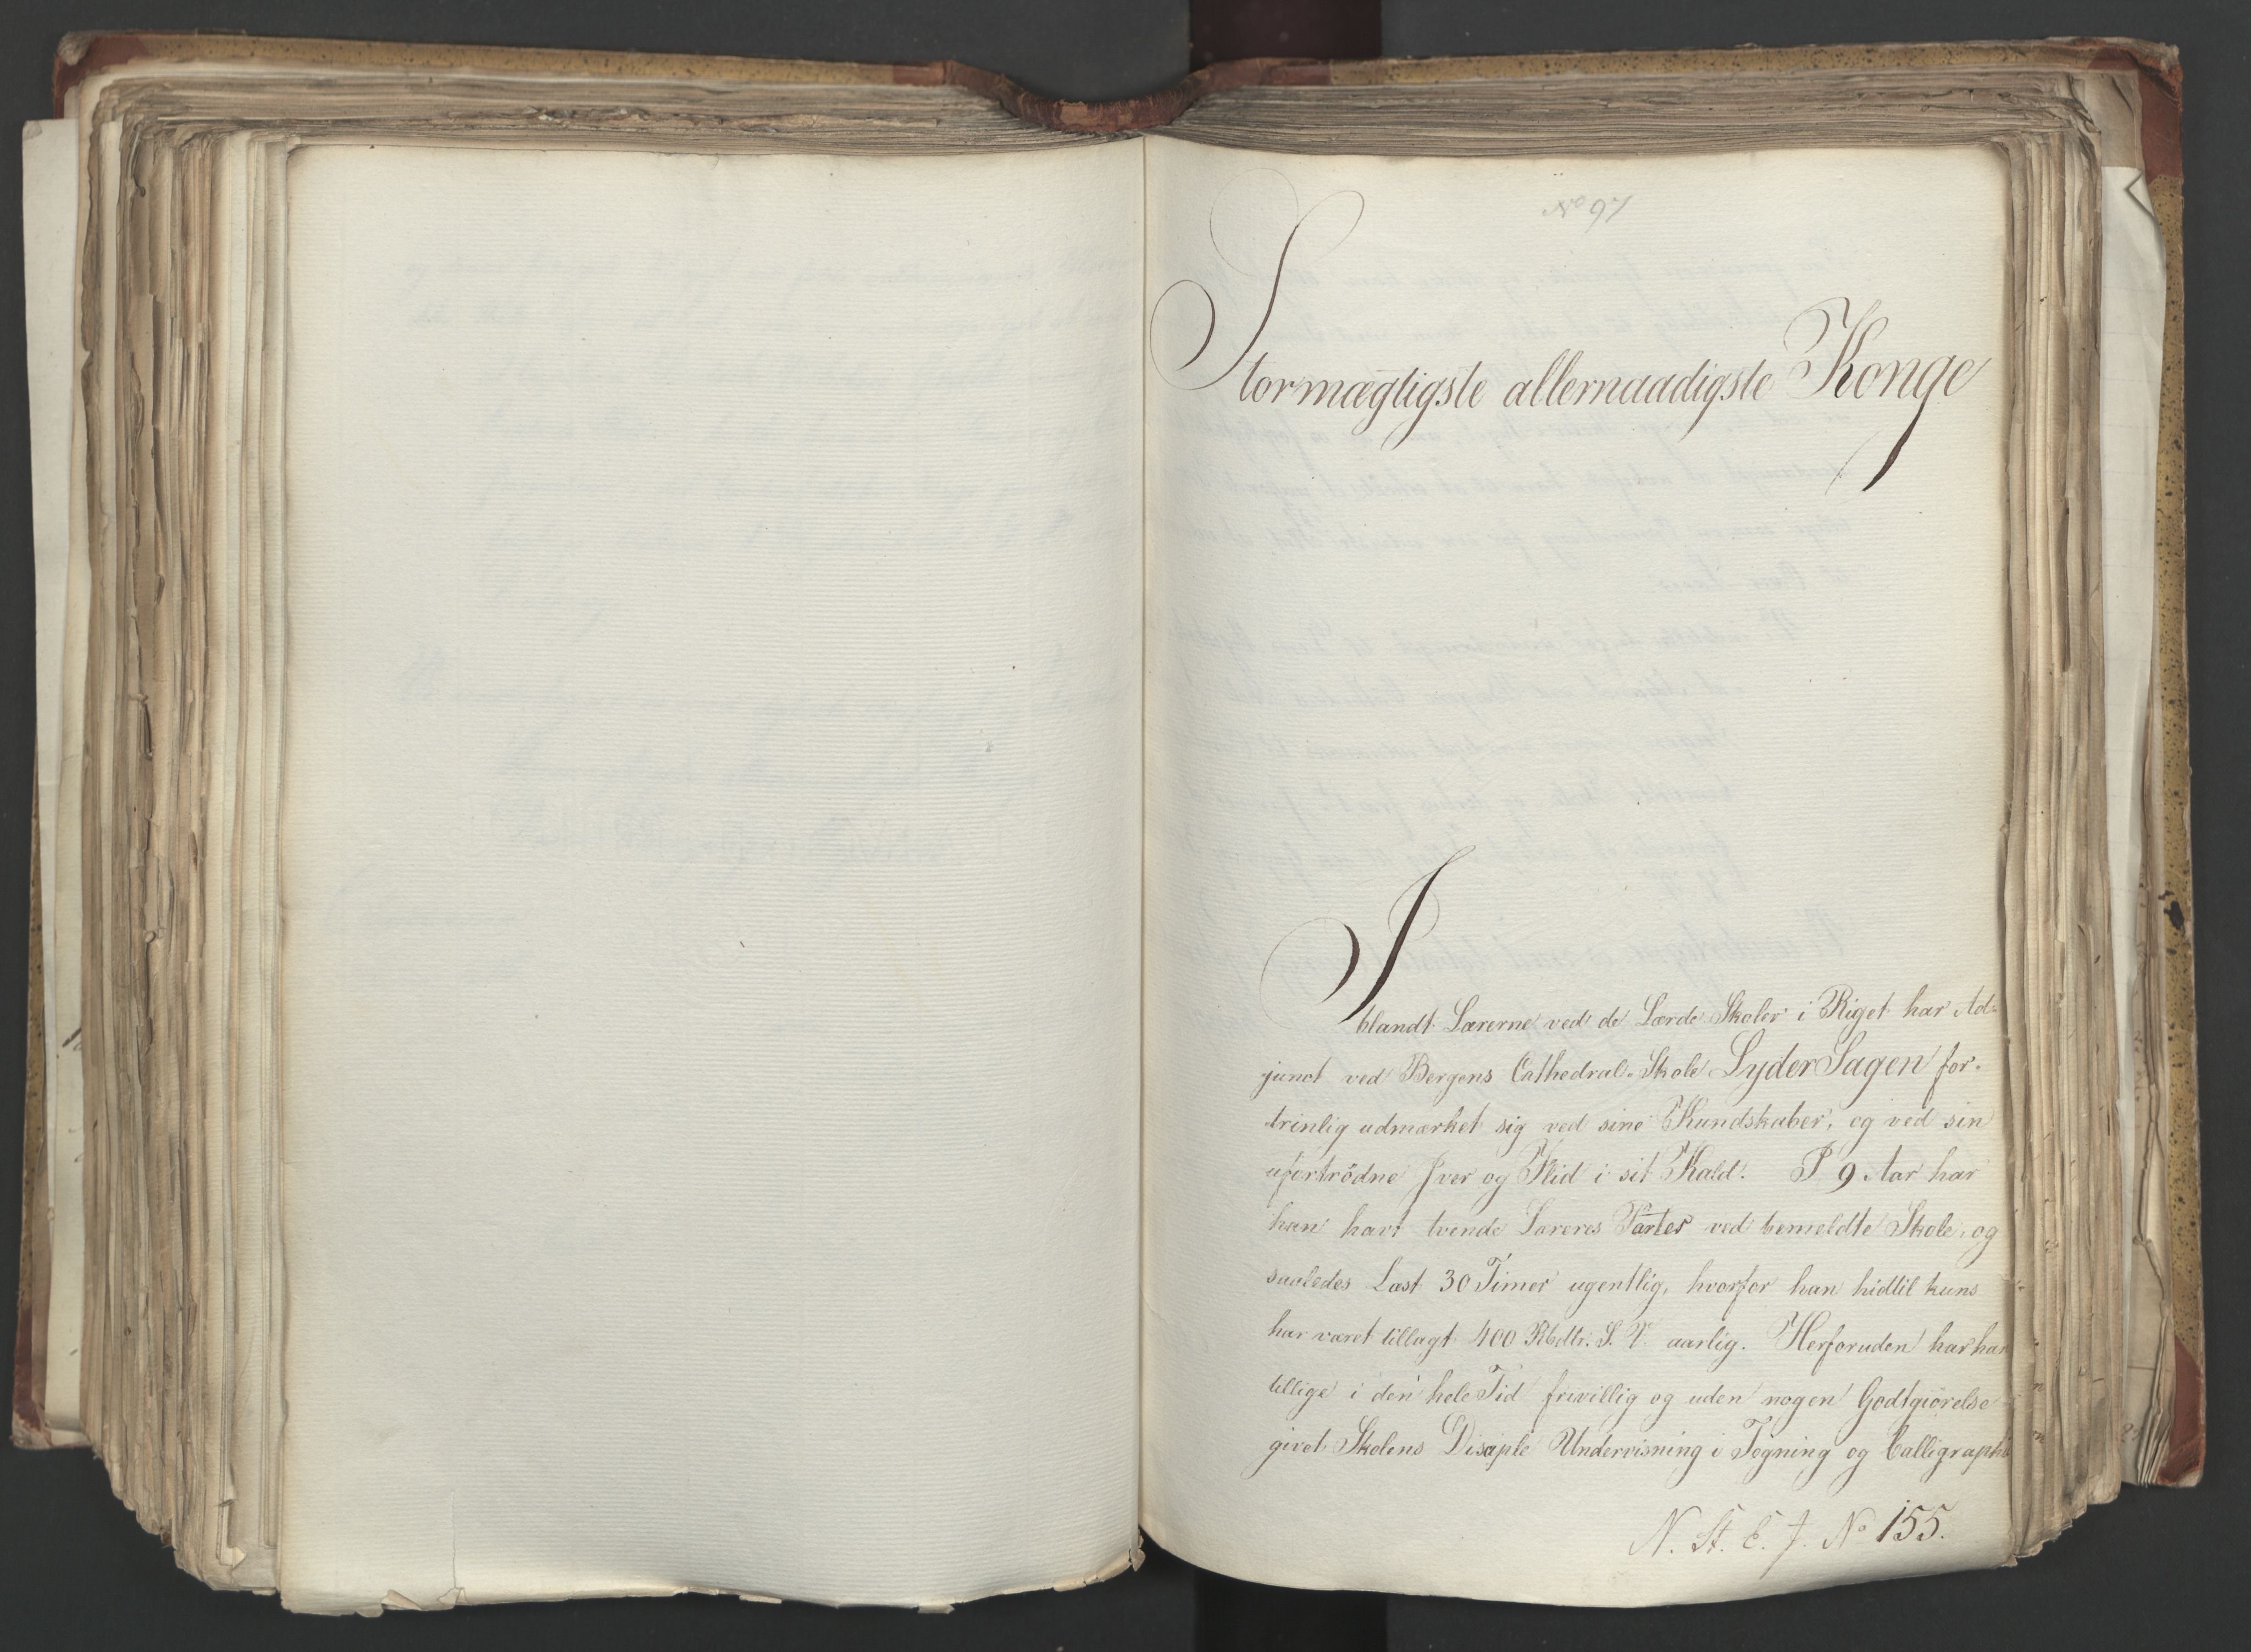 No 97
Stormægtigste allernaadigste Konge
Iblandt Lærerne ved de Lærde Skoler i Riget har Ad-
junct ved Bergens Cathedral-Skole Lyder Sagen for-
trinlig udmærket sig ved sine Kundskaber, og ved sin
ufortrödne Iver og Flid i sit Kald. I 9 Aar har
han havt tvende Læreres Poster ved bemeldte Skole, og
saaledes Læst 30 Timer ugentlig, hvorfor han hidtil kuns
har været tillagt 400 Rbdlr. S. V. aarlig. Herforuden har han
tillige i den hele Tid frivillig og uden nogen Godtgiörelse
givet Skolens Disciple Undervisning i Tegning og Calligraphie
N. St. E. J. No 155.